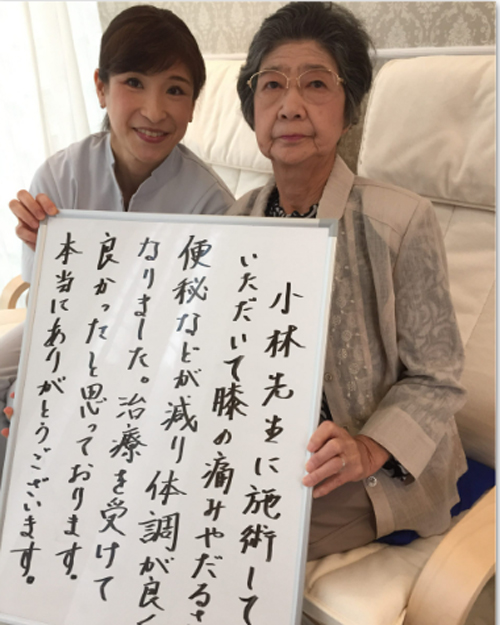 小林先生に施術して
いただいて膝の痛みやだるさ
便秘などが減り体調が良く
なりました。治療を受けて
良かったと思っております。
本当にありがとうございます。